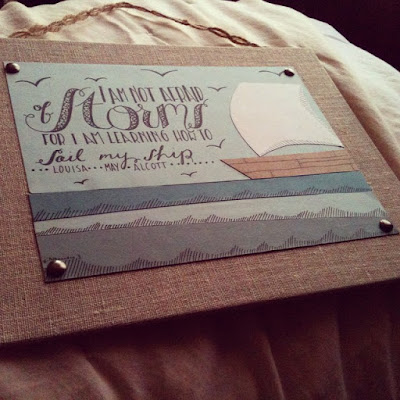 I AM NOT AFRAID
of STORMS
FOR I AM LEARNING HOW TO
Sail my ship
LOUISA...MAY...ALCOTT.......